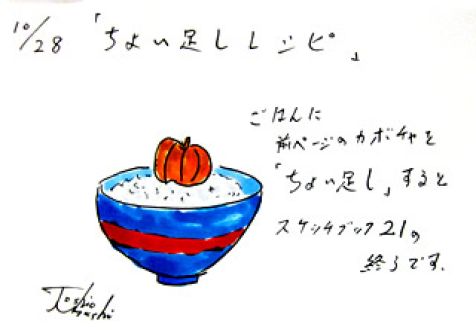 10/28 「ちょい足しレシピ」
ごはんに
前ページのカボチャを
「ちょい足し」すると
スケッチブック21の
終了です。
Toshio